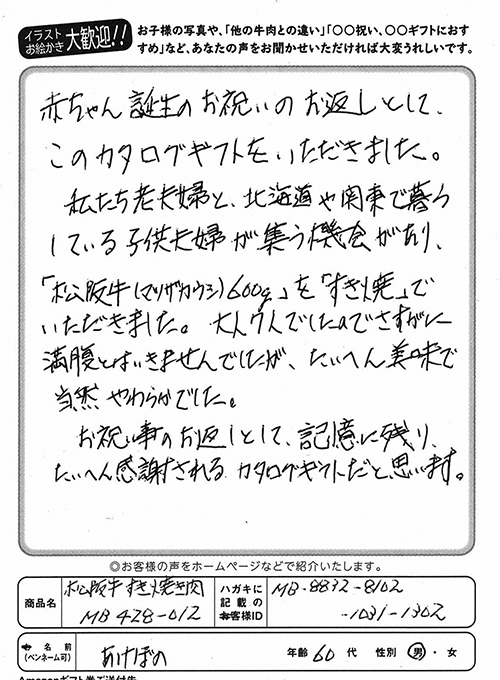 イラスト
お絵かき 大歓迎!!
お子様の写真や、「他の牛肉との違い」「○○祝い、○○ギフトにおす
すめ」など、あなたの声をお聞かせいただければ大変うれしいです。
赤ちゃん誕生のお祝いのお返しとして、
このカタログギフトをいただきました。
私たち老夫婦と、北海道や関東で暮らし
ている子供夫婦が集う機会があり、
「松阪牛(マツザカウシ)600g」を「すき焼」で
いただきました。大人7人でしたのでさすがに
満腹とはいきませんでしたが、たいへん美味で
当然やわらかでした。
お祝い事のお返しとして、記憶に残り、
たいへん感謝されるカタログギフトだと思います。
◎お客様の声をホームページなどで紹介いたします。
商品名 松阪牛すき焼き肉
MB428-012
ハガキに
記載の
お客様ID
MB-8832-8102
-1031-1302
お名前
(ペンネーム可)
あけぼの
年齢 60 代 性別 男・女
Amazonギフト券ご送付先